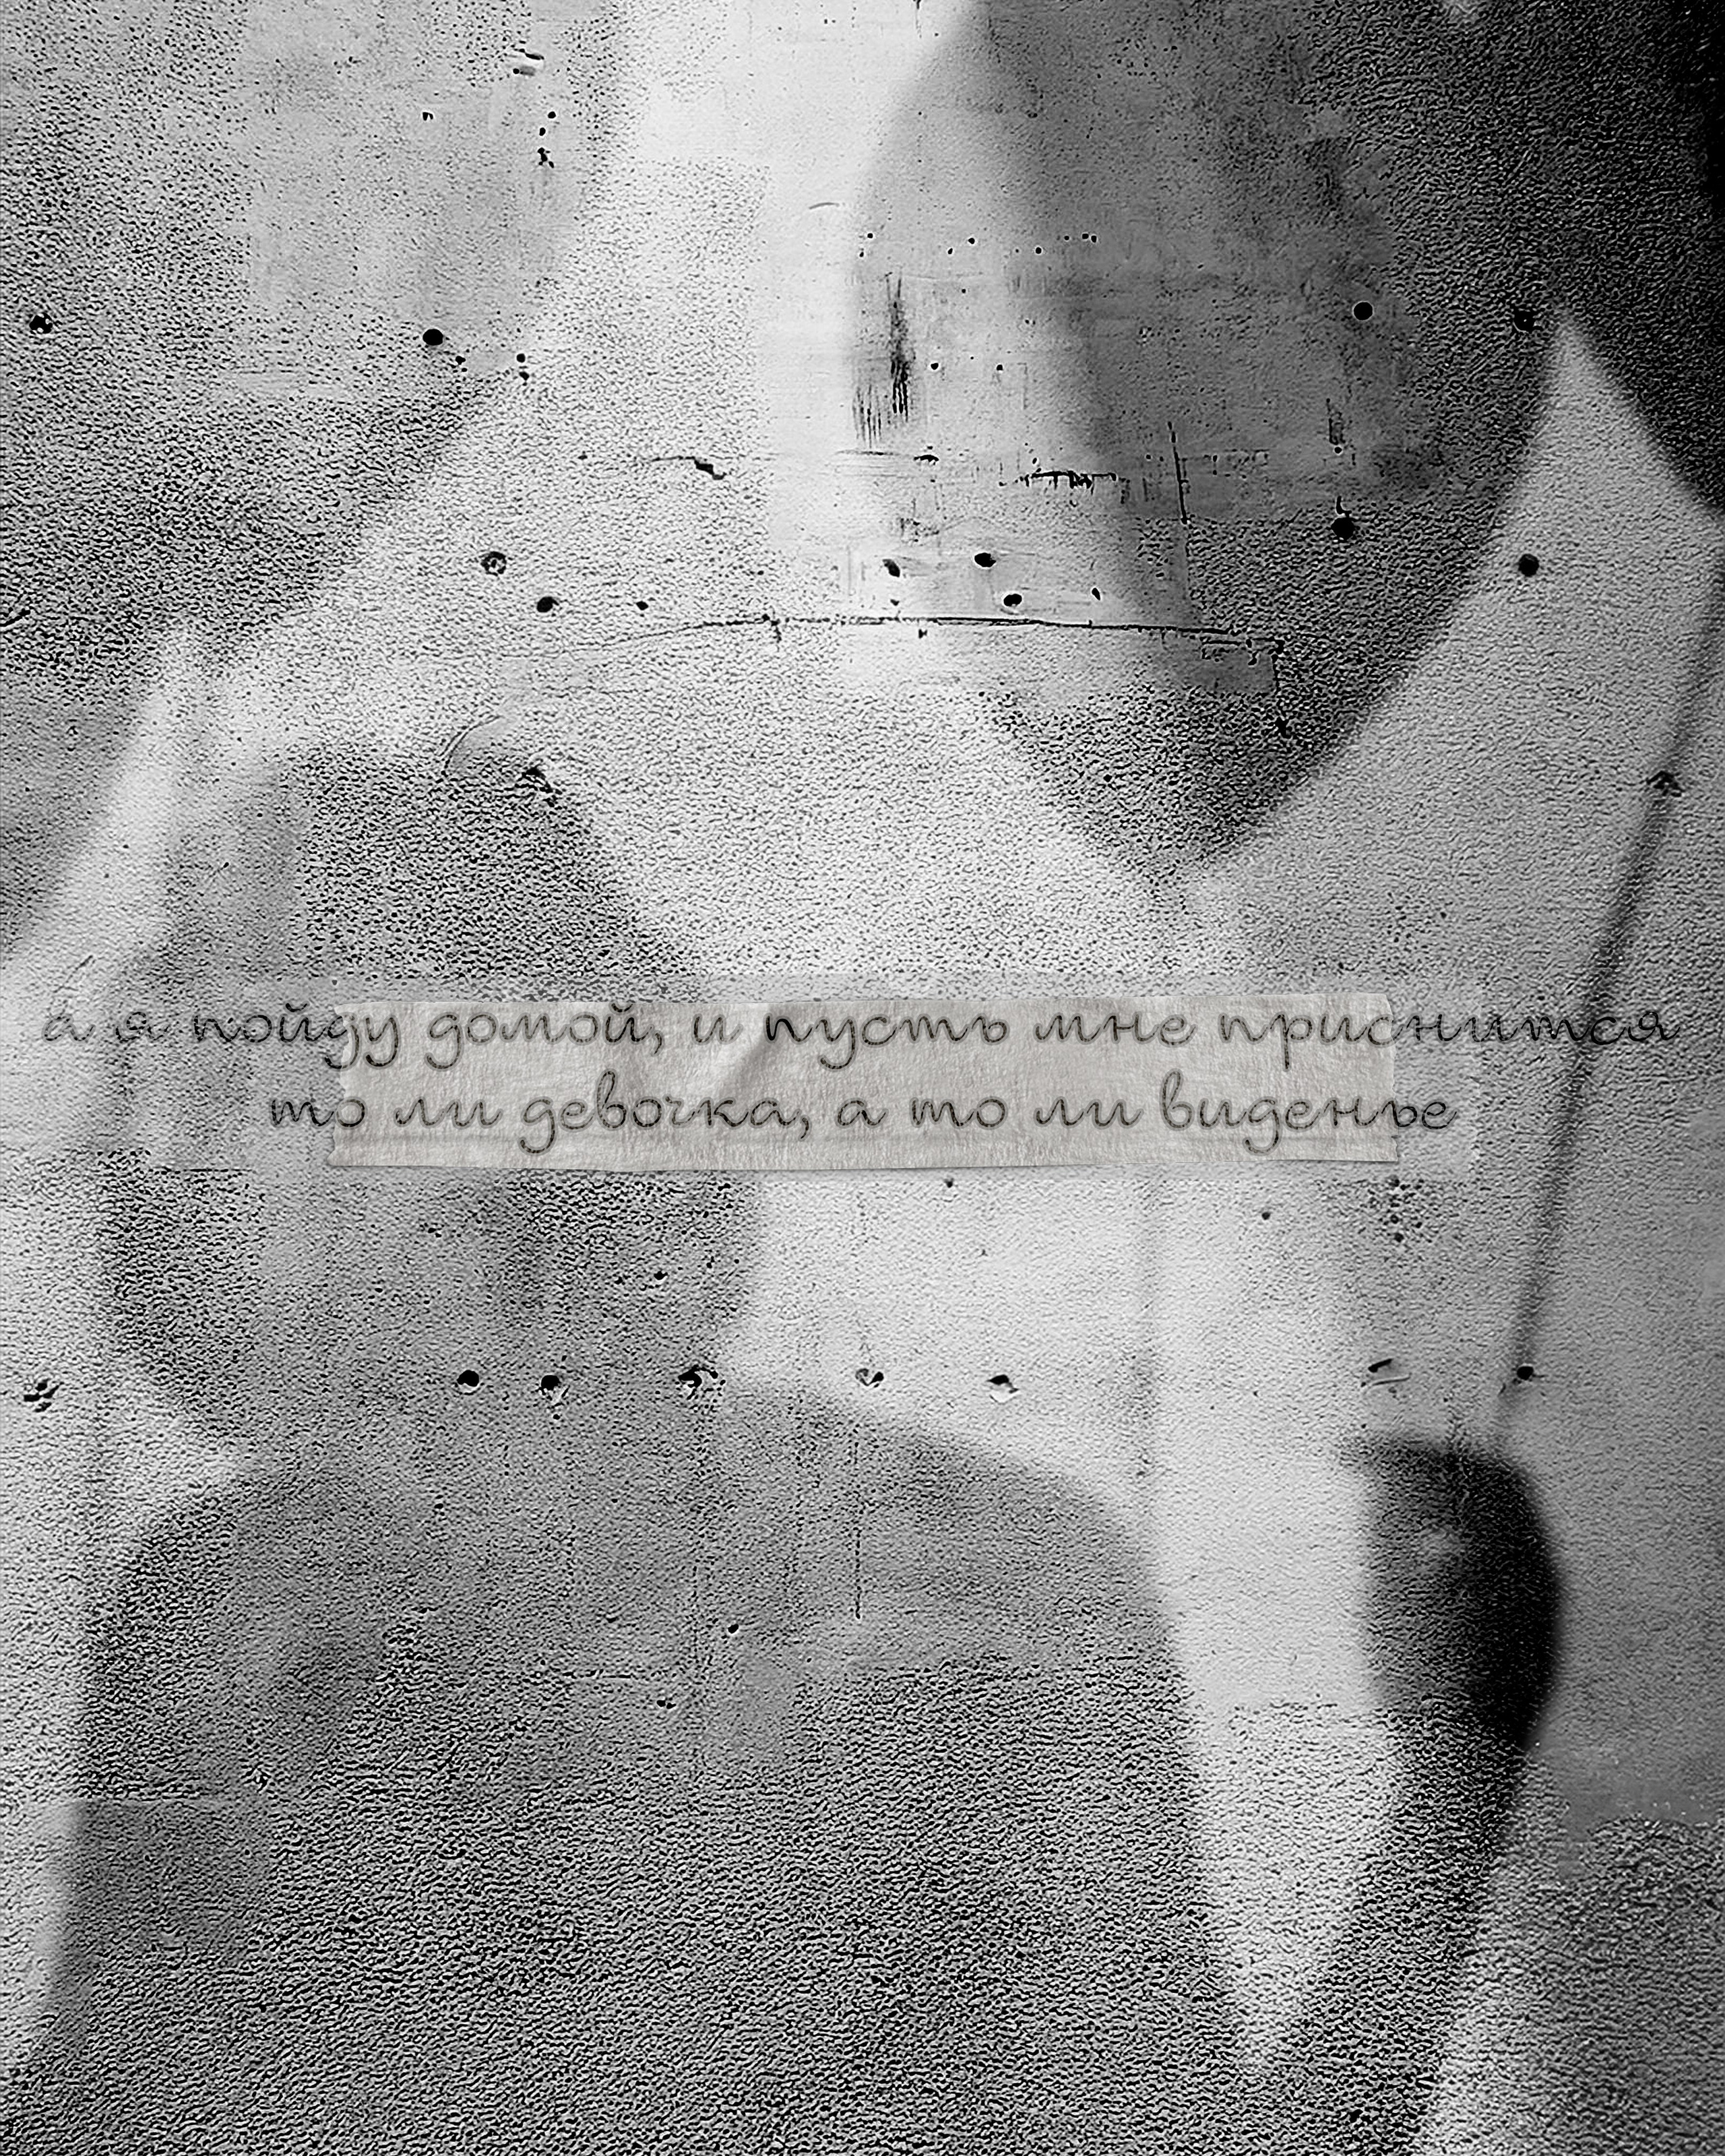 а я пойду домой, и пусть мне приснится
то ли девочка, а то ли виденье